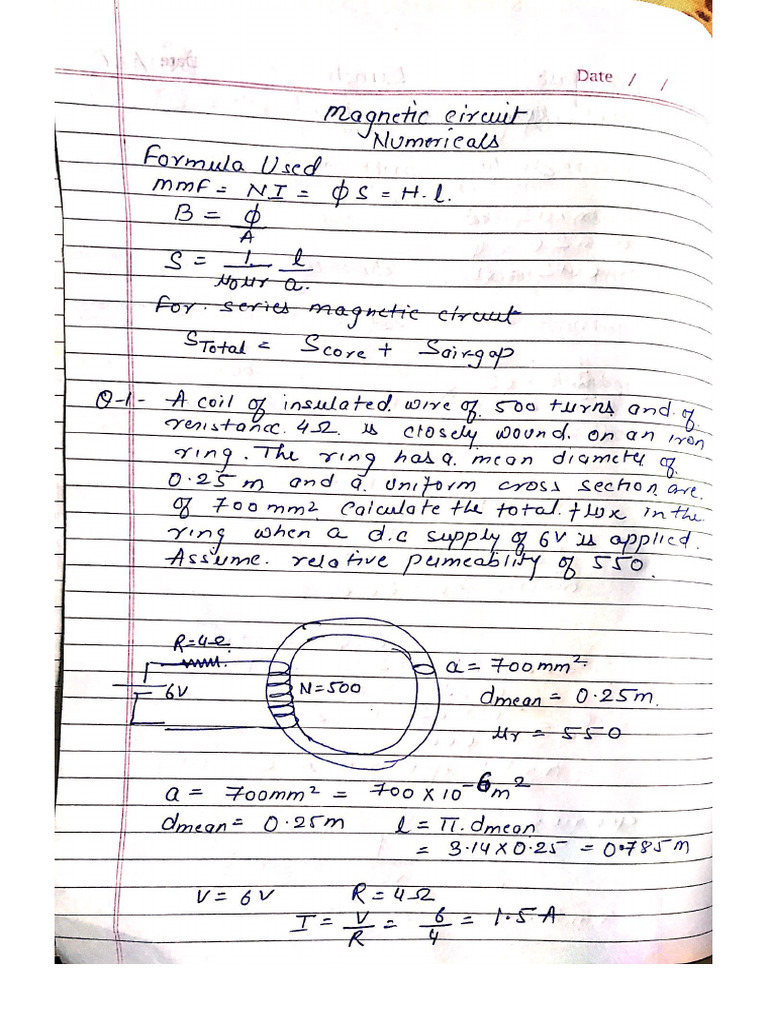 Date / /
Magnetic circuit
Numericals
Formula Used
MMF = NI = ϕS = H.l.
B = ϕ/A
S = 1/μ0μr l/a.
For. series magnetic circuit
STotal = Score + Sairgap
Q-1- A coil of insulated wire of 500 turns and of
resistance 4Ω is closely wound on an iron
ring. The ring has a mean diameter of
0.25 m and a uniform cross section are.
of 700 mm2. Calculate the total flux in the
ring when a d.c supply of 6V is applied.
Assume relative permeablity of 550.
R=4Ω
6V
N=500
a = 700mm2
dmean = 0.25m.
μr = 550
a = 700mm2 = 700 × 10-6 m2
dmean = 0.25m l = π.dmean
= 3.14×0.25 = 0.785m
V = 6V R = 4Ω
I = V/R = 6/4 = 1.5 A